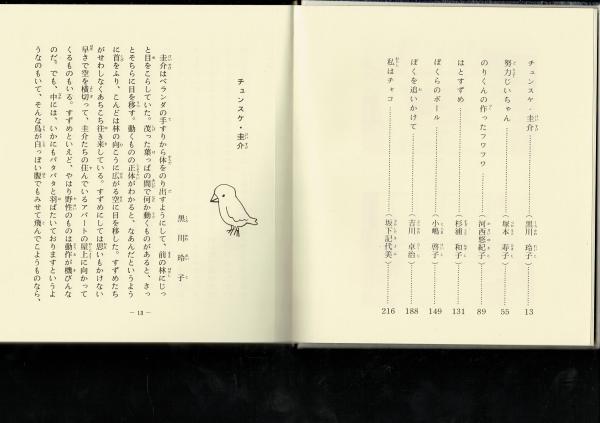 チュンスケ・圭介……………（黒川 玲子）……13
努力じいちゃん……………（塚本 寿子）……55
のりくんの作ったフワフワ……………（河西悠紀子）……89
はとすずめ……………（杉浦 和子）……131
ぼくらのボール……………（小嶋 啓子）……149
ぼくを追いかけて……………（吉川 卓治）……188
私はチャコ……………（坂下記代美）……216
チュンスケ・圭介
黒川玲子
圭介はベランダの手すりから体をのり出すようにして、前の林にじっ
と目をこらしていた。茂った葉っぱの間で何か動くものがあると、さっ
とそちらに目を移す。動くものの正体がわかると、なあんだというよう
に首をふり、こんどは林の向こうに広がる空に目を移した。すずめたち
がせわしなくあちこち往き来している。すずめにしては思いもかけない
早さで空を横切って、圭介たちの住んでいるアパートの屋上に向かって
くるものもいる。すずめといえど、やはり野性のものは動作が機びんな
のだ。でも、中には、いかにもパタパタと羽ばたいておりますというよ
うなのもいて、そんな鳥が白っぽい腹でもみせて飛んでこようものなら、
― 13 ―